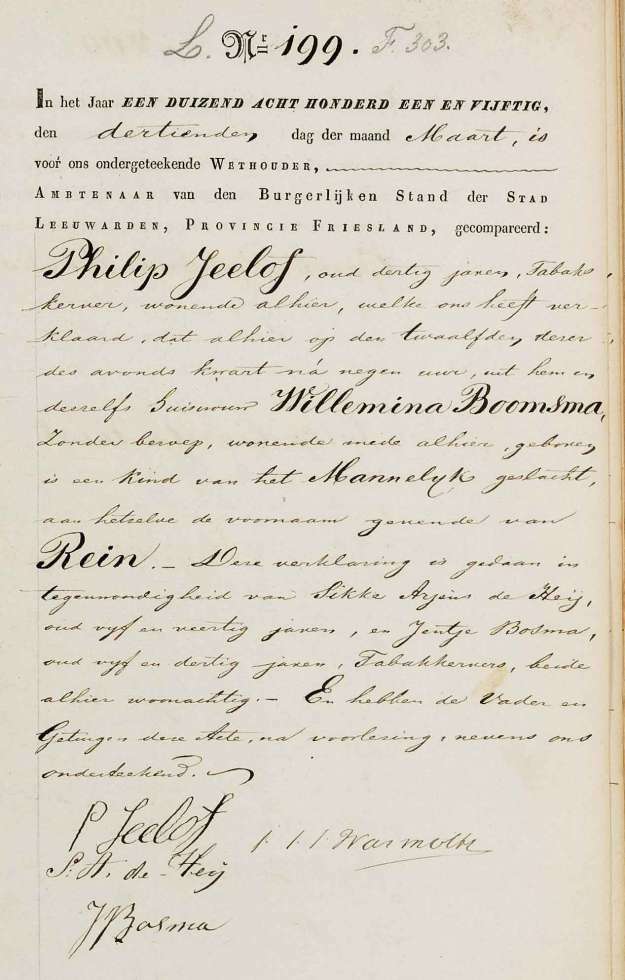 L. Nr 199. F. 303.
In het Jaar EEN DUIZEND ACHT HONDERD EEN EN VIJFTIG,
den dertienden dag der maand Maart, is
voor ons ondergeteekende WETHOUDER,
AMBTENAAR van den Burgerlijken Stand der STAD
LEEUWARDEN, PROVINCIE FRIESLAND, gecompareerd:
Philip Jeelof, oud dertig jaren, Tabaks
kerver, wonende alhier, welke ons heeft ver-
klaard, dat alhier op den twaalfden dezer
des avonds kwart ná negen uur, uit hem en
deszelfs huisvrouw Willemina Boomsma,
Zonder beroep, wonende mede alhier, geboren
is een Kind van het Mannelyk geslacht,
aan hetzelve de voornaam gevende van
Rein. - Deze verklaring is gedaan in
tegenwoordigheid van Sikke Arjens de Heij,
oud vyf en veertig jaren, en Jentje Bosma,
oud vyf en dertig jaren, Tabakkervers, beide
alhier woonachtig. - En hebben de Vader en
Getuigen deze Acte, na voorlezing, nevens ons
onderteekend.
P Jeelof
Warmolts
S. A. de Heij
J Bosma